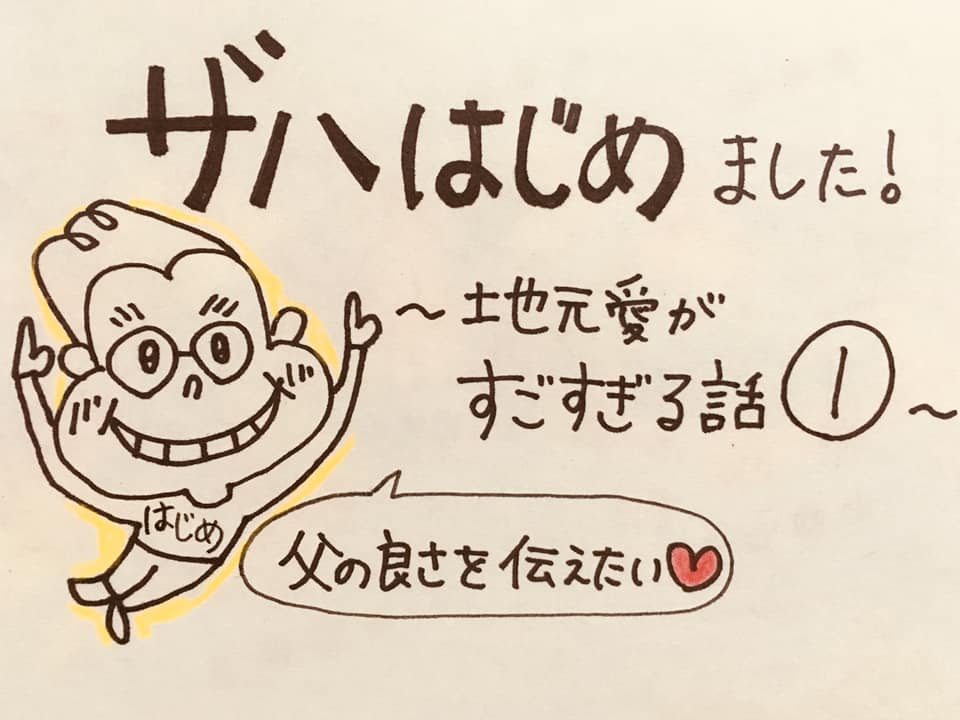 ザハはじめました!
～地元愛が
すごすぎる話①～
はじめ
父の良さを伝えたい♥